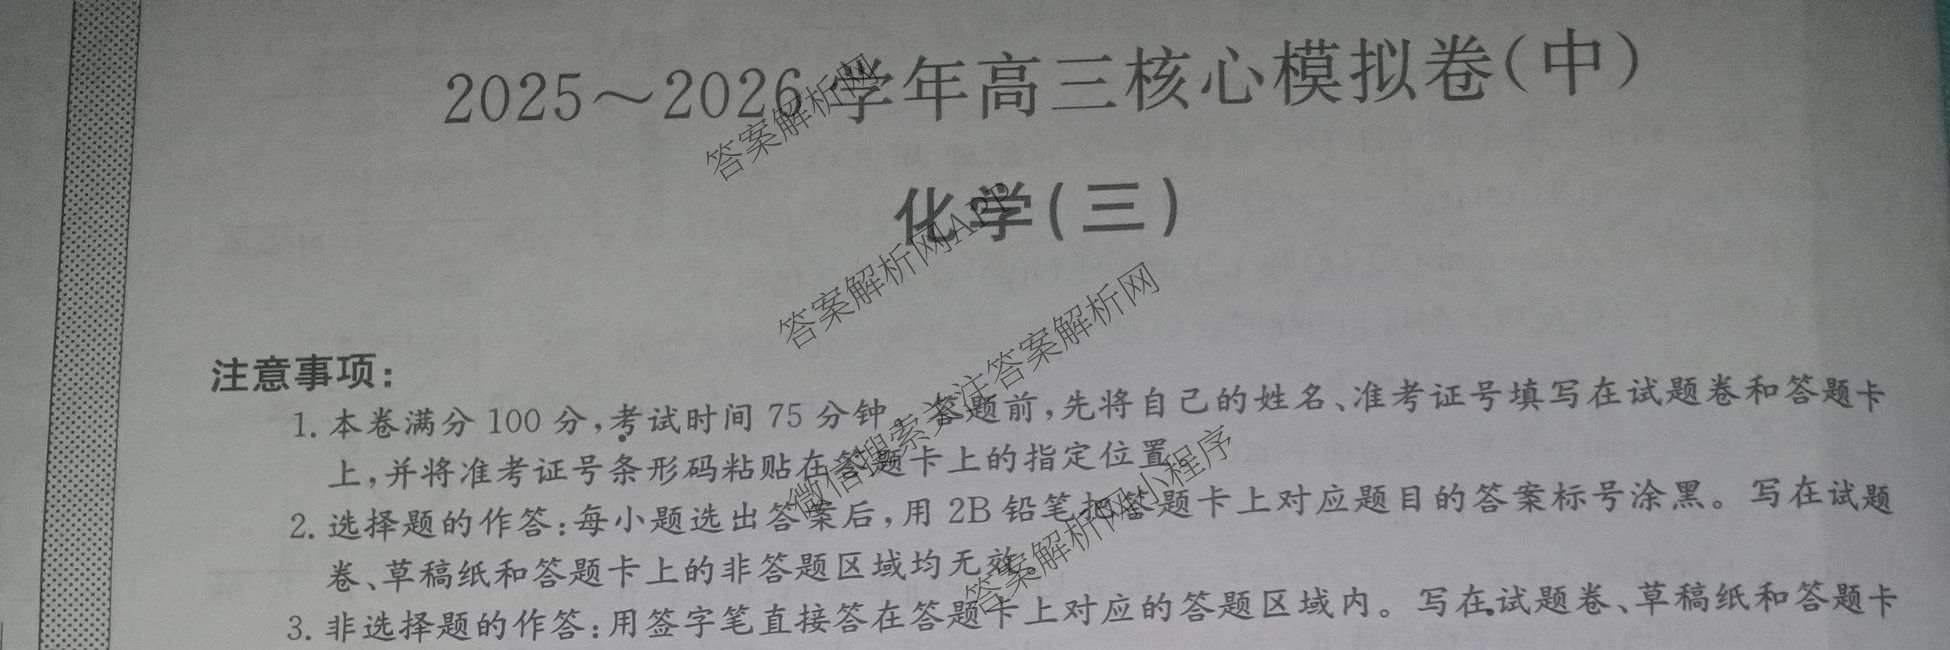 2025～2026学年高三核心模拟卷（中）
化学（三）
注意事项：
1. 本卷满分 100 分，考试时间 75 分钟。答题前，先将自己的姓名、准考证号填写在试题卷和答题卡
上，并将准考证号条形码粘贴在答题卡上的指定位置。
2. 选择题的作答：每小题选出答案后，用 2B 铅笔把答题卡上对应题目的答案标号涂黑。写在试题
卷、草稿纸和答题卡上的非答题区域均无效。
3. 非选择题的作答：用签字笔直接答在答题卡上对应的答题区域内。写在试题卷、草稿纸和答题卡
答案解析网
答案解析网APP
微信搜索关注答案解析网
答案解析网小程序